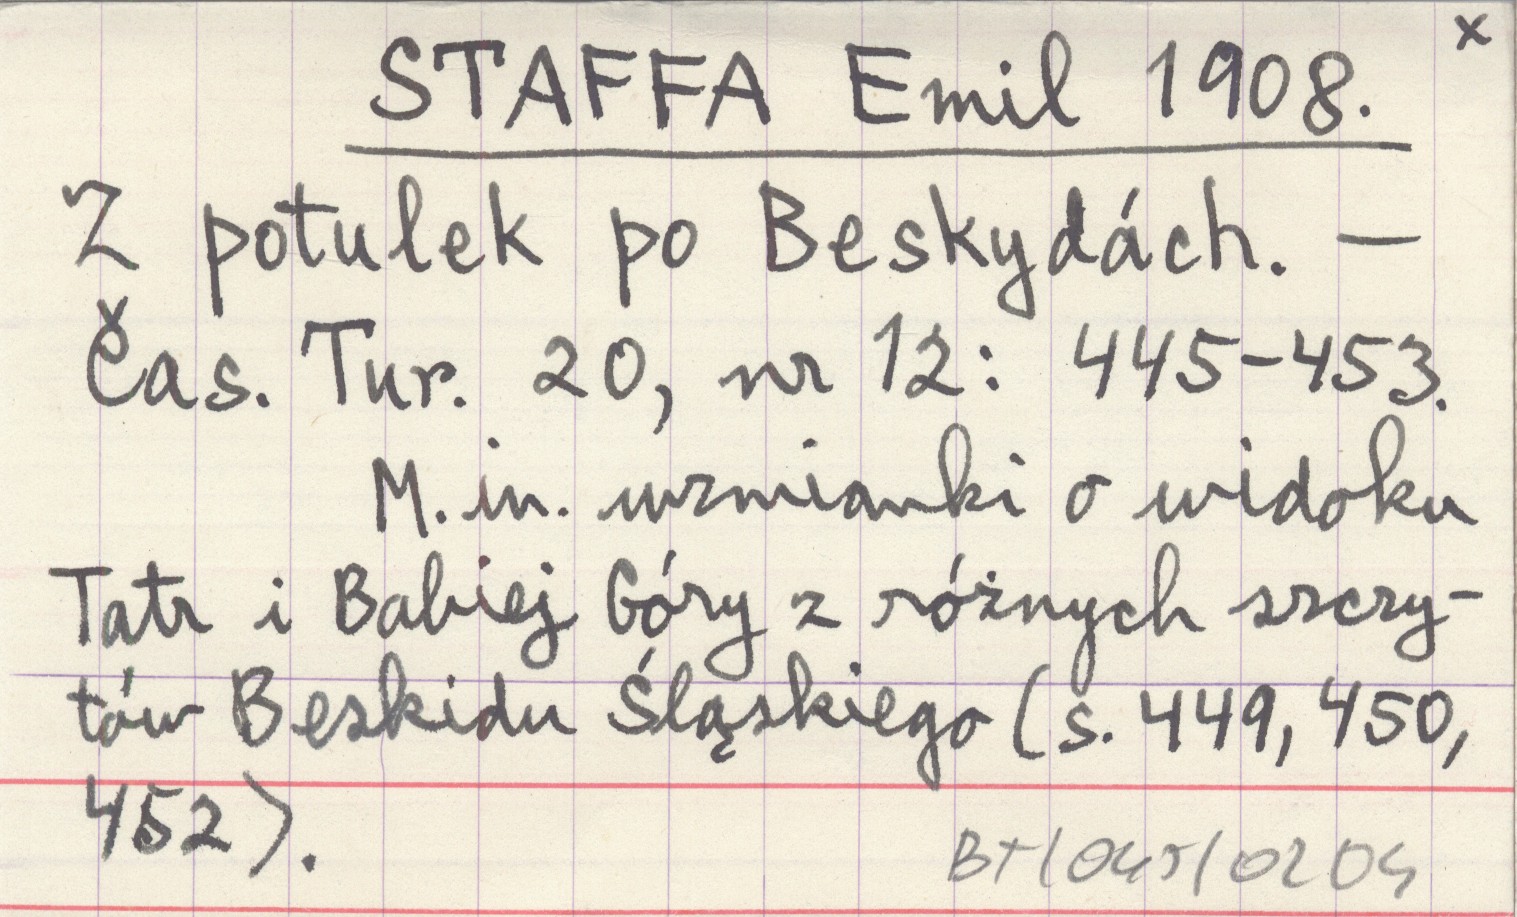 x
STAFFA Emil 1908.
Z potulek po Beskydách. —
Čas. Tur. 20, nr 12: 445-453.
M. in. wzmianki o widoku
Tatr i Babiej Góry z różnych szczy-
tów Beskidu Śląskiego (s. 449, 450,
452).
BT/045/0204